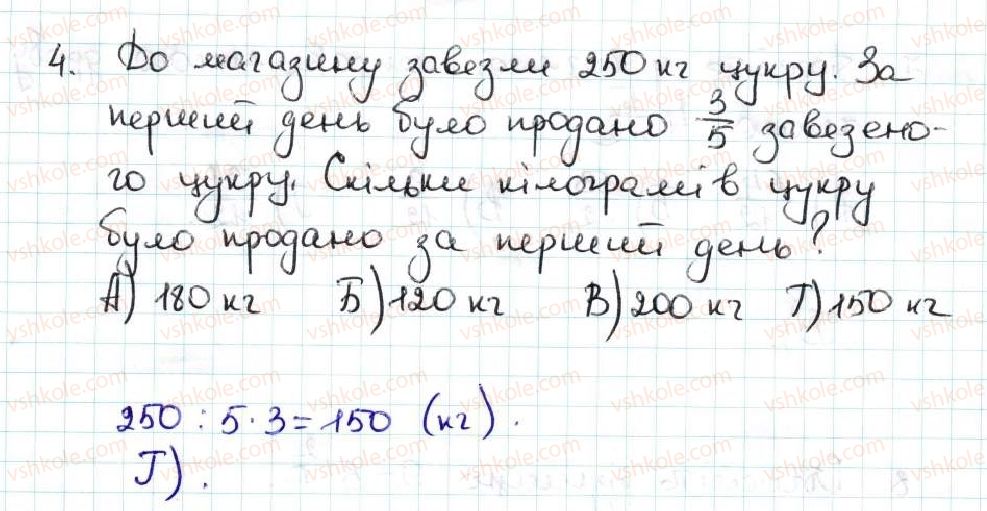 4. До магазину завезли 250 кг цукру. За
перший день було продано 3/5 завезено-
го цукру. Скільки кілограмів цукру
було продано за перший день?
А) 180 кг Б) 120 кг В) 200 кг Г) 150 кг
250 : 5 · 3 = 150 (кг).
Г).